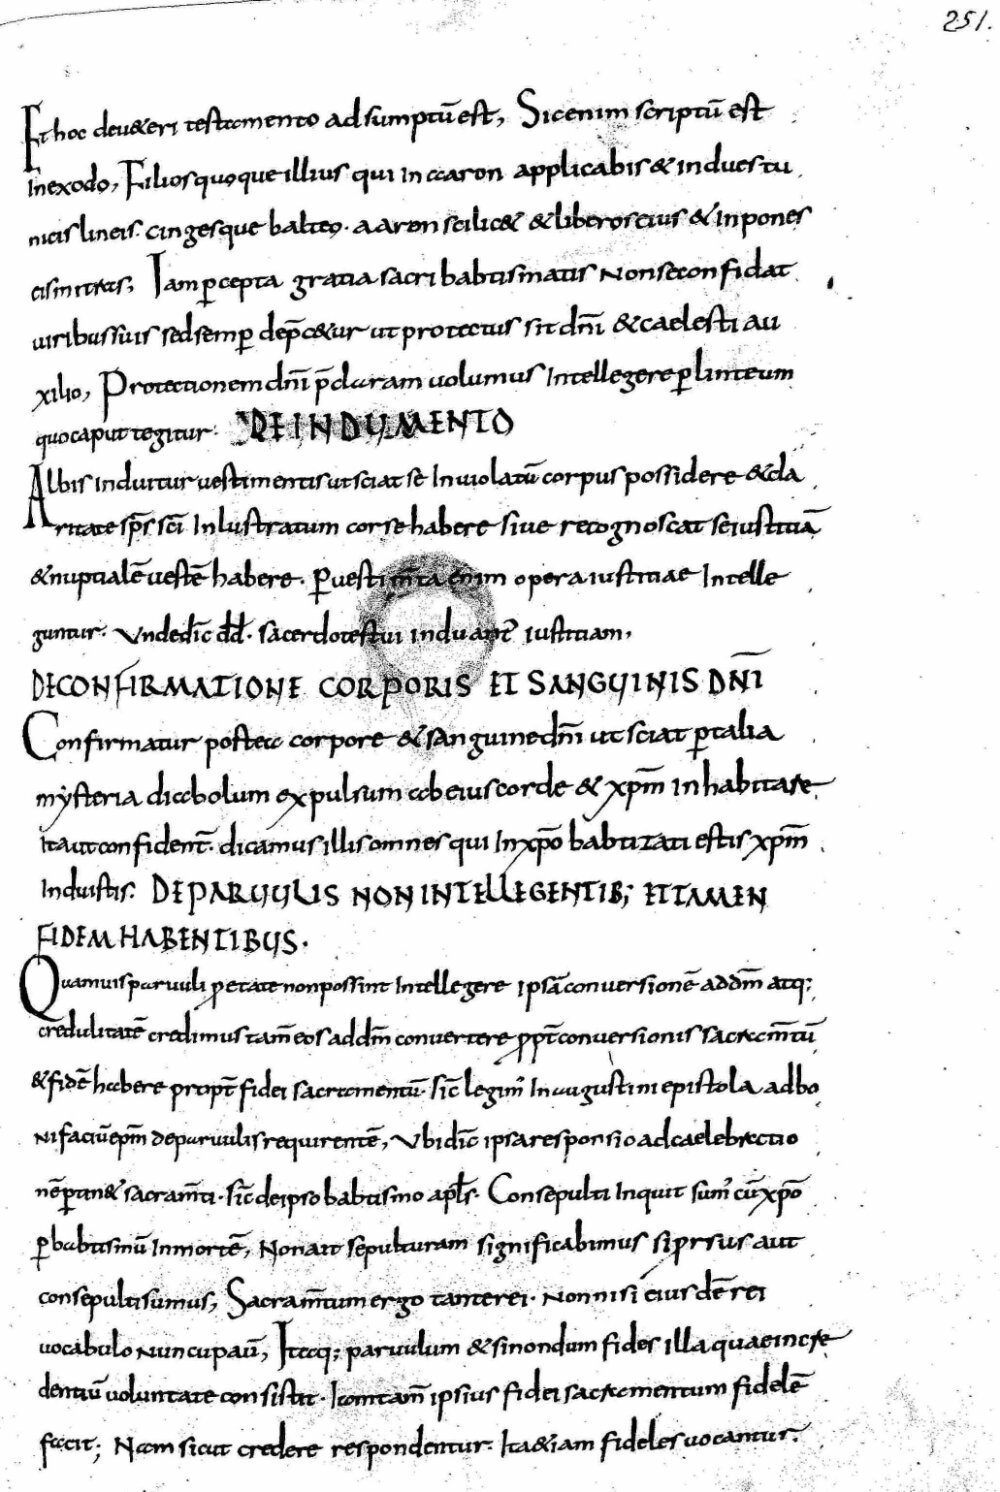 251.
Et hoc deu&eri testamento adsumptū est, Sicenim scriptū est
Inexodo, Filiosquoque illius qui Inaaron applicabis & induestu
nicislineis. cingesque balteo. aaronscilic& &liberoseius & inpones
eismitras, Iam p̄cepta gratia sacri babtismatis Nonseconfidat
uiribussuis sedsemp̄ dep̄c&ur ut protectus sit dn̄i &caelesti au
xilio, Protectionem dn̄i p̄claram uolumus Intellegere p̄ linteum
quocaput tegitur. DE INDUMENTO
Albis induitur uestimentis utsciat sē Inuiolatū corpus possidere &cla
ritate sp̄s sc̄i Inlustratum cor se habere siue recognoscat seiustitiā
&nuptialē uestē habere. P̄ uestim̄ta enim opera iustitiae Intelle
guntur. Vndedic̄ dd̄. sacerdotestui induant᾿ iustitiam,
DE CONFIRMATIONE CORPORIS ET SANGUINIS DN̄I
Confirmatur postea corpore &sanguinedn̄i ut sciat p̄talia
mysteria diabolum expulsum abeiuscorde & xp̄m inhabitare
Itaut confident̄. dicamus illis omnes qui Inxp̄o babtizati estis xp̄m
Induistis. DE PARUULIS NON INTELLEGENTIB; ET TAMEN
FIDEM HABENTIBUS.
Quamuis paruuli p̄ etate nonpossint Intellegere ipsā conuersionē addm̄ atq;
credulitatē credimus tam̄ eos addm̄ conuertere p̄pt̄ conuersionis sacram̄tū
&fidē habere propt̄ fidei sacramentū. sic̄ legim᾿ In augustini epistola adbo
nifaciū ep̄m deparuulis requirentē, Vbidic̄ ipsa responsio adcaelebratio
nē p̄tin&᾿ sacram̄ti. sic̄ deipso babtismo apl̄s. Consepulti Inquit sum᾿ cū xp̄o
p̄ babtismū Inmortē, Nonait sepulturam significabimus si prsus aut
consepultisumus, Sacram̄tum ergo tanterei. Nonnisi eius dē rei
uocabulo Nuncupauī, Itaq; paruulum &sinondum fides illa quaeincre
dentiū uoluntate consistit. Iam tam̄ ipsius fidei sacramentum fidelē
facit; Nam sicut credere respondentur. Ita&iam fideles uocantur.